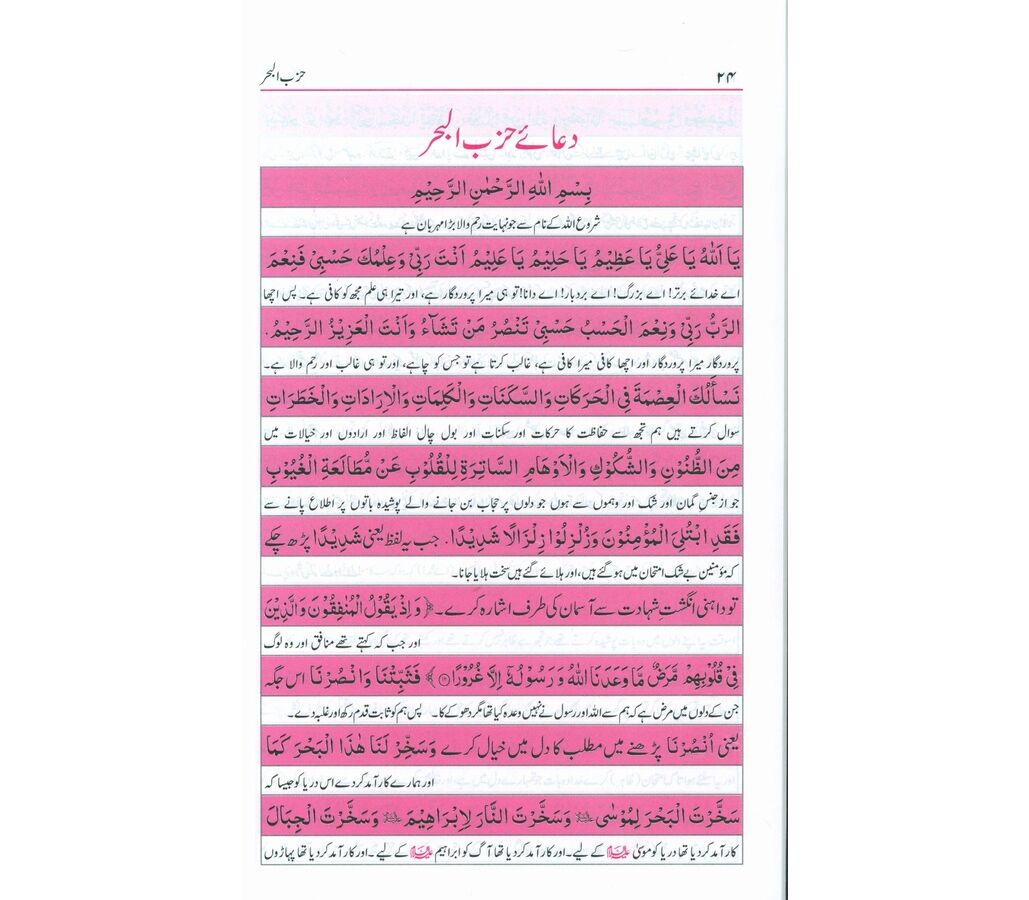 ۲۴ حزب البحر
دعائے حزب البحر
بِسْمِ اللهِ الرَّحْمٰنِ الرَّحِيْمِ
شروع اللہ کے نام سے جو نہایت رحم والا بڑا مہربان ہے
يَا اَللهُ يَا عَلِيُّ يَا عَظِيْمُ يَا حَلِيْمُ يَا عَلِيْمُ اَنْتَ رَبِّىْ وَعِلْمُكَ حَسْبِىْ فَنِعْمَ
اے خدائے برتر! اے بزرگ! اے بردبار! اے دانا! تو ہی میرا پروردگار ہے، اور تیرا ہی علم مجھ کو کافی ہے۔ پس اچھا
الرَّبُّ رَبِّىْ وَنِعْمَ الْحَسْبُ حَسْبِىْ تَنْصُرُ مَنْ تَشَآءُ وَاَنْتَ الْعَزِيْزُ الرَّحِيْمُ.
پروردگار میرا پروردگار اور اچھا کافی میرا کافی ہے، غالب کرتا ہے تو جس کو چاہے، اور تو ہی غالب اور رحم والا ہے۔
نَسْأَلُكَ الْعِصْمَةَ فِى الْحَرَكَاتِ وَالسَّكَنَاتِ وَالْكَلِمَاتِ وَالْاِرَادَاتِ وَالْخَطَرَاتِ
سوال کرتے ہیں ہم تجھ سے حفاظت کا حرکات اور سکنات اور بول چال الفاظ اور ارادوں اور خیالات میں
مِنَ الظُّنُوْنِ وَالشُّكُوْكِ وَالْاَوْهَامِ السَّاتِرَةِ لِلْقُلُوْبِ عَنْ مُّطَالَعَةِ الْغُيُوْبِ
جو از جنس گمان اور شک اور وہموں سے ہوں جو دلوں پر حجاب بن جانے والے پوشیدہ باتوں پر اطلاع پانے سے
فَقَدِ ابْتُلِىَ الْمُؤْمِنُوْنَ وَزُلْزِلُوْا زِلْزَالًا شَدِيْدًا. جب یہ لفظ یعنی شَدِيْدًا پڑھ چکے
کہ مؤمنین بے شک امتحان میں ہو گئے ہیں، اور ہلائے گئے ہیں سخت ہلایا جانا۔
تو داہنی انگشتِ شہادت سے آسمان کی طرف اشارہ کرے۔ ﴿وَاِذْ يَقُوْلُ الْمُنٰفِقُوْنَ وَالَّذِيْنَ
اور جب کہ کہتے تھے منافق اور وہ لوگ
فِىْ قُلُوْبِهِمْ مَّرَضٌ مَّا وَعَدَنَا اللهُ وَرَسُوْلُهٗٓ اِلَّا غُرُوْرًا﴾ فَثَبِّتْنَا وَانْصُرْنَا اس جگہ
جن کے دلوں میں مرض ہے کہ ہم سے اللہ اور رسول نے نہیں وعدہ کیا تھا مگر دھوکے کا۔ پس ہم کو ثابت قدم رکھ اور غلبہ دے۔
یعنی اُنْصُرْنَا پڑھنے میں مطلب کا دل میں خیال کرے وَسَخِّرْ لَنَا هٰذَا الْبَحْرَ كَمَا
اور ہمارے کار آمد کر دے اس دریا کو جیسا کہ
سَخَّرْتَ الْبَحْرَ لِمُوْسٰى وَسَخَّرْتَ النَّارَ لِاِبْرَاهِيْمَ وَسَخَّرْتَ الْجِبَالَ
کار آمد کر دیا تھا دریا کو موسیٰ علیہ السلام کے لیے۔ اور کار آمد کر دیا تھا آگ کو ابراہیم علیہ السلام کے لیے۔ اور کار آمد کر دیا تھا پہاڑوں